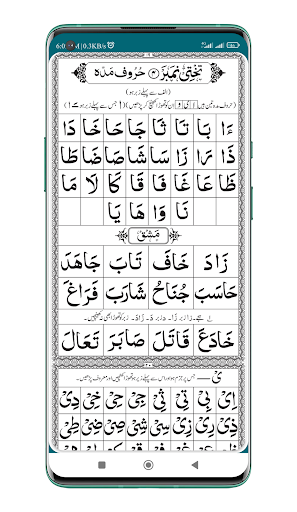 6:0 PM | 0.3KB/s
تختی نمبر ۴ حروف مدہ
(الف سے پہلے زبر ہو)
ءَا بَا تَا ثَا جَا حَا خَا دَا
ذَا رَا زَا سَا شَا صَا ضَا طَا
ظَا عَا غَا فَا قَا كَا لَا مَا
نَا وَا هَا يَا
مشق
زَادَ خَافَ تَابَ جَاهَدَ
حَاسَبَ جُنَاحُ شَارَبَ فَرَاغَ
خَادَعَ قَاتَلَ صَابَرَ تَعَالَ
اِيْ بِيْ تِيْ ثِيْ جِيْ حِيْ خِيْ دِيْ
ذِيْ رِيْ زِيْ سِيْ شِيْ صِيْ ضِيْ طِيْ